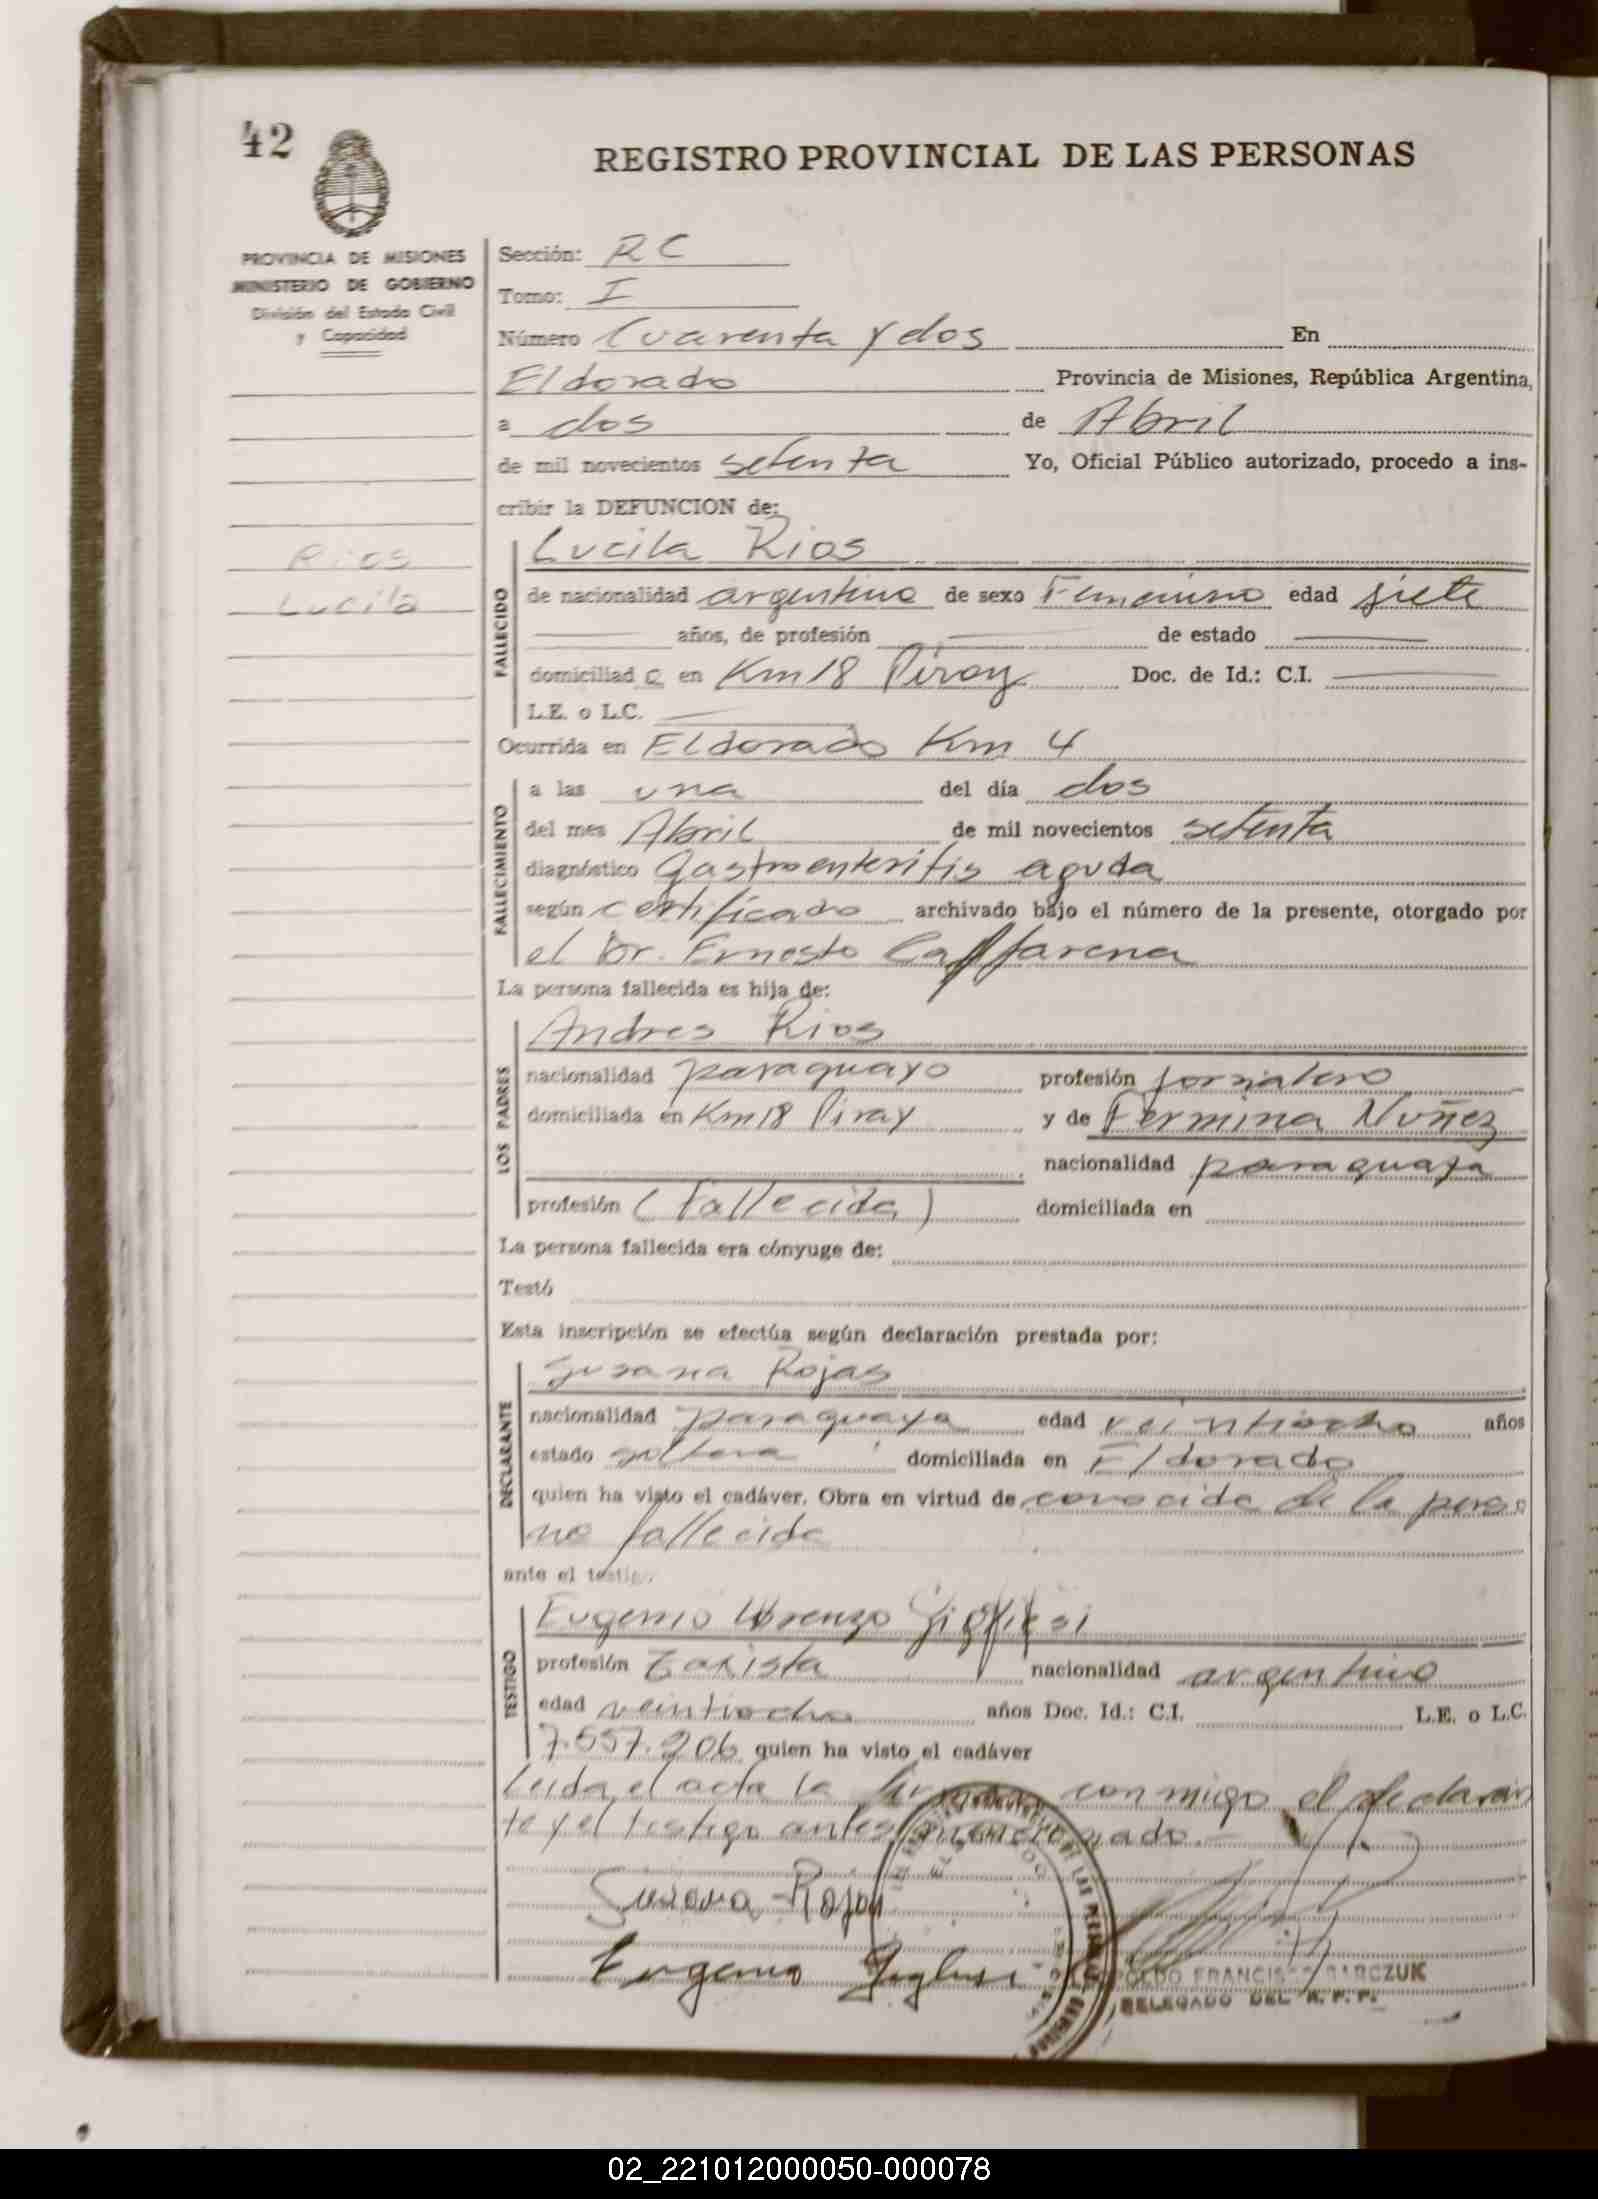 42
REGISTRO PROVINCIAL DE LAS PERSONAS
PROVINCIA DE MISIONES
MINISTERIO DE GOBIERNO
División del Estado Civil
y Capacidad
Sección: R C
Tomo: I
Número Cuarenta y dos En
Eldorado Provincia de Misiones, República Argentina,
a dos de Abril
de mil novecientos setenta Yo, Oficial Público autorizado, procedo a ins-
cribir la DEFUNCION de:
Rios
Lucila
FALLECIDO
Lucila Rios
de nacionalidad argentina de sexo Femenino edad siete
años, de profesión de estado
domiciliad a en Km 18 Piray Doc. de Id.: C.I.
L.E. o L.C.
Ocurrida en Eldorado Km 4
FALLECIMIENTO
a las una del día dos
del mes Abril de mil novecientos setenta
diagnóstico Gastroenteritis aguda
según certificado archivado bajo el número de la presente, otorgado por
el Dr. Ernesto Caffarena
La persona fallecida es hija de:
LOS PADRES
Andres Rios
nacionalidad paraguayo profesión jornalero
domiciliada en Km 18 Piray y de Fermina Nuñez
nacionalidad paraguaya
profesión (fallecida) domiciliada en
La persona fallecida era cónyuge de:
Testó
Esta inscripción se efectúa según declaración prestada por:
DECLARANTE
Susana Rojas
nacionalidad paraguaya edad veintiocho años
estado soltera domiciliada en Eldorado
quien ha visto el cadáver. Obra en virtud de conocida de la perso
na fallecida
ante el testigo
TESTIGO
Eugenio Lorenzo
profesión Taxista nacionalidad argentino
edad veintiocho años Doc. Id.: C.I. L.E. o L.C.
7.557.206 quien ha visto el cadáver
Leida el acta la conmigo el declaran
te y el testigo antes mencionado.-
Susana Rojas
Eugenio
FRANCISCO BARCZUK
DELEGADO DEL R. P. P.
02_221012000050-000078